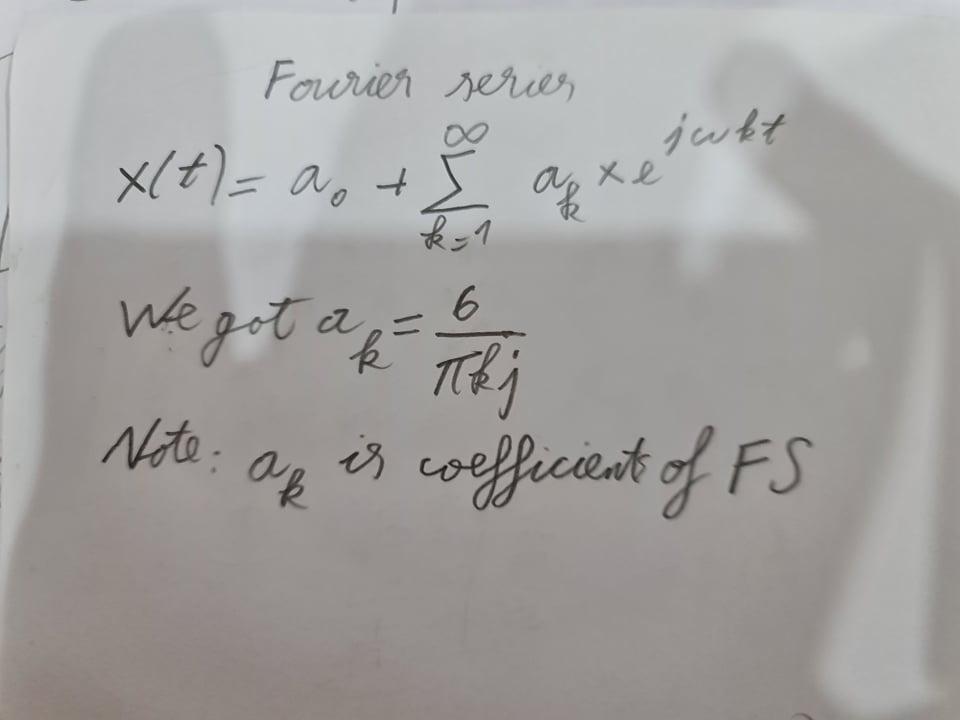 Fourier series
x(t) = a₀ + ∑_{k=1}^{∞} a_k × e^{jωkt}
We got a_k = 6/(πkj)
Note: a_k is coefficients of FS